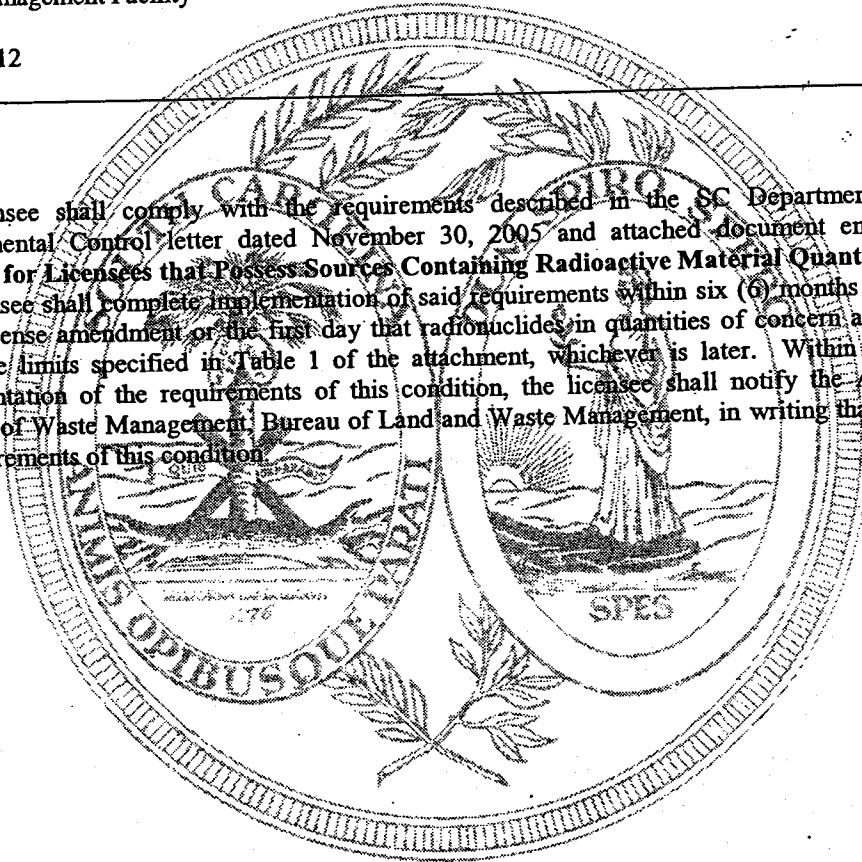 nagement Facility
12
nsee shall comply with the requirements described in the SC Department
mental Control letter dated November 30, 2005 and attached document en
for Licensees that Possess Sources Containing Radioactive Material Quant
see shall complete implementation of said requirements within six (6) months
ense amendment or the first day that radionuclides in quantities of concern a
e limits specified in Table 1 of the attachment, whichever is later. Within
ntation of the requirements of this condition, the licensee shall notify the
of Waste Management, Bureau of Land and Waste Management, in writing tha
rements of this condition.
SOUTH CAROLINA
DUM SPIRO SPERO
QUIS SEPARABIT
1776
ANIMIS OPIBUSQUE PARATI
SPES